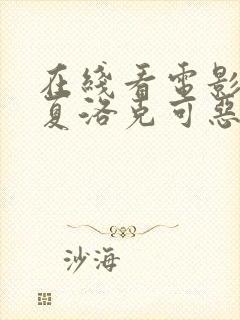 在綫看電影
夏洛克可惡
沙海